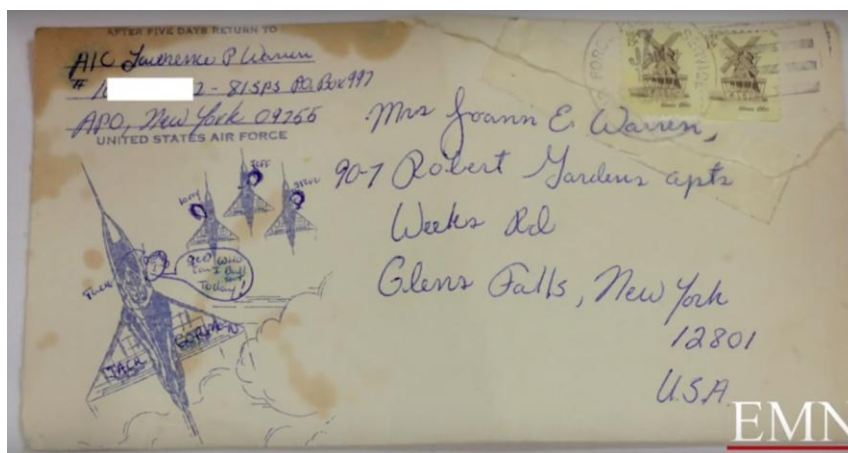 AFTER FIVE DAYS RETURN TO
A1C Lawrence P Warren
2 - 81SPS P.O. Box 997
APO, New York 09755
UNITED STATES AIR FORCE
Mrs Joann E. Warren,
90-7 Robert Gardens apts
Weeks Rd
Glens Falls, New York
12801
U.S.A.
JEFF
Today!
JACK
GORMAN
EMN